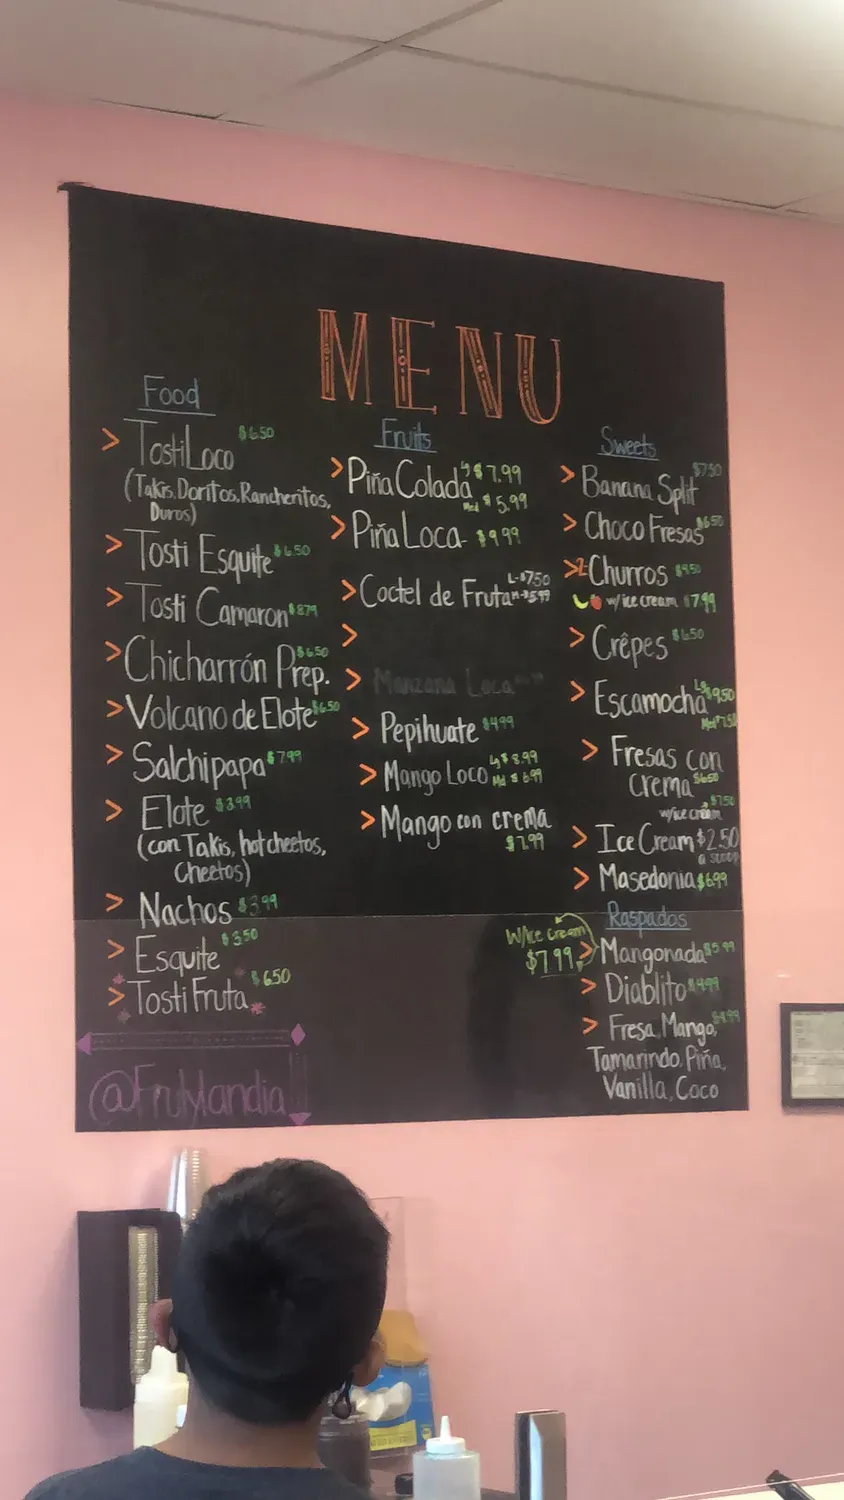 MENU
Food
> TostiLoco $6.50
(Takis, Doritos, Rancheritos,
Duros)
> Tosti Esquite $6.50
> Tosti Camaron $8.79
> Chicharrón Prep. $6.50
> Volcano de Elote $6.50
> Salchipapa $7.99
> Elote $3.99
(con Takis, hot cheetos,
Cheetos)
> Nachos $3.99
> Esquite $3.50
> Tosti Fruta $6.50
@Frutylandia
Fruits
> Piña Colada Lg $7.99
Med $5.99
> Piña Loca - $9.99
> Coctel de Fruta L-$7.50
M-$5.99
>
> Manzana Loca
> Pepihuate $4.99
> Mango Loco Lg $8.99
Md $6.99
> Mango con crema
$7.99
Sweets
> Banana Split $7.50
> Choco Fresas $6.50
> 2- Churros $4.50
w/ice cream $7.99
> Crêpes $6.50
> Escamocha Lg $9.50
Med $7.50
> Fresas con
crema $6.50
w/ice cream $7.50
> Ice Cream $2.50
a scoop
> Masedonia $6.99
Raspados
W/Ice Cream
$7.99
> Mangonada $5.99
> Diablito $4.99
> Fresa, Mango, $4.99
Tamarindo, Piña,
Vanilla, Coco